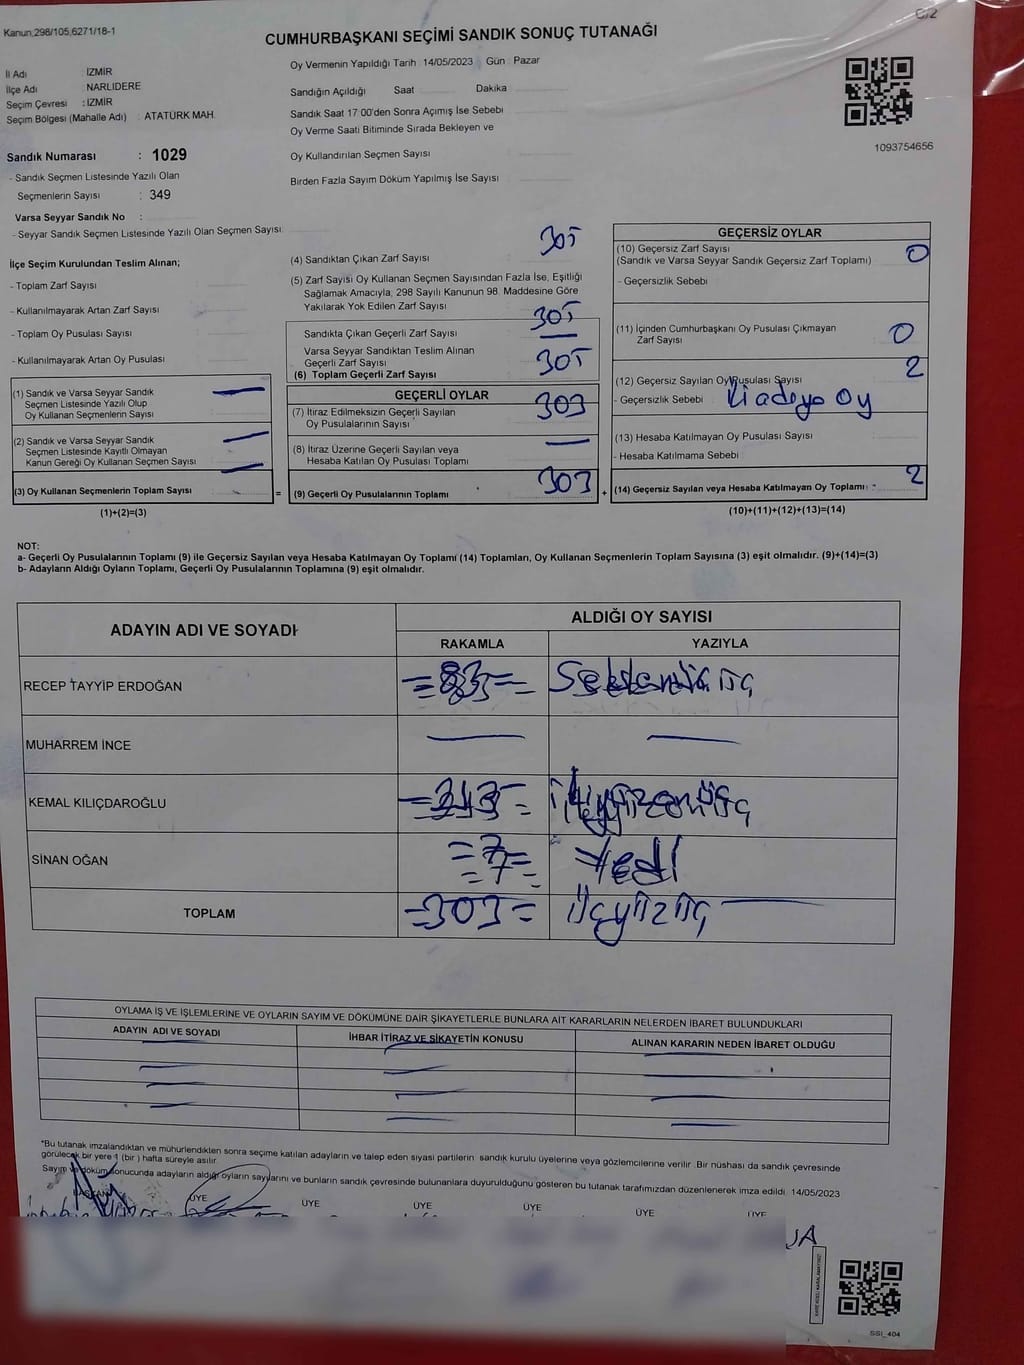 C/2
Kanun,298/105,6271/18-1
CUMHURBAŞKANI SEÇİMİ SANDIK SONUÇ TUTANAĞI
İl Adı : İZMİR
İlçe Adı : NARLIDERE
Seçim Çevresi : İZMİR
Seçim Bölgesi (Mahalle Adı) : ATATÜRK MAH.
Oy Vermenin Yapıldığı Tarih 14/05/2023 Gün : Pazar
Sandığın Açıldığı Saat Dakika
Sandık Saat 17:00'den Sonra Açımış İse Sebebi
Oy Verme Saati Bitiminde Sırada Bekleyen ve
Oy Kullandırılan Seçmen Sayısı
Birden Fazla Sayım Döküm Yapılmış İse Sayısı
1093754656
Sandık Numarası : 1029
- Sandık Seçmen Listesinde Yazılı Olan
Seçmenlerin Sayısı : 349
Varsa Seyyar Sandık No :
- Seyyar Sandık Seçmen Listesinde Yazılı Olan Seçmen Sayısı:
İlçe Seçim Kurulundan Teslim Alınan;
- Toplam Zarf Sayısı
- Kullanılmayarak Artan Zarf Sayısı
- Toplam Oy Pusulası Sayısı
- Kullanılmayarak Artan Oy Pusulası
(1) Sandık ve Varsa Seyyar Sandık
Seçmen Listesinde Yazılı Olup
Oy Kullanan Seçmenlerin Sayısı
(2) Sandık ve Varsa Seyyar Sandık
Seçmen Listesinde Kayıtlı Olmayan
Kanun Gereği Oy Kullanan Seçmen Sayısı
(3) Oy Kullanan Seçmenlerin Toplam Sayısı =
(1)+(2)=(3)
(4) Sandıktan Çıkan Zarf Sayısı 305
(5) Zarf Sayısı Oy Kullanan Seçmen Sayısından Fazla İse, Eşitliği
Sağlamak Amacıyla, 298 Sayılı Kanunun 98. Maddesine Göre
Yakılarak Yok Edilen Zarf Sayısı
Sandıkta Çıkan Geçerli Zarf Sayısı 305
Varsa Seyyar Sandıktan Teslim Alınan
Geçerli Zarf Sayısı
(6) Toplam Geçerli Zarf Sayısı 305
GEÇERLİ OYLAR
(7) İtiraz Edilmeksizin Geçerli Sayılan
Oy Pusulalarının Sayısı 303
(8) İtiraz Üzerine Geçerli Sayılan veya
Hesaba Katılan Oy Pusulası Toplamı
(9) Geçerli Oy Pusulalarının Toplamı 303 +
GEÇERSİZ OYLAR
(10) Geçersiz Zarf Sayısı
(Sandık ve Varsa Seyyar Sandık Geçersiz Zarf Toplamı) 0
- Geçersizlik Sebebi
(11) İçinden Cumhurbaşkanı Oy Pusulası Çıkmayan
Zarf Sayısı 0
(12) Geçersiz Sayılan Oy Pusulası Sayısı 2
- Geçersizlik Sebebi
(13) Hesaba Katılmayan Oy Pusulası Sayısı
- Hesaba Katılmama Sebebi
(14) Geçersiz Sayılan veya Hesaba Katılmayan Oy Toplamı 2
(10)+(11)+(12)+(13)=(14)
NOT:
a- Geçerli Oy Pusulalarının Toplamı (9) ile Geçersiz Sayılan veya Hesaba Katılmayan Oy Toplamı (14) Toplamları, Oy Kullanan Seçmenlerin Toplam Sayısına (3) eşit olmalıdır. (9)+(14)=(3)
b- Adayların Aldığı Oyların Toplamı, Geçerli Oy Pusulalarının Toplamına (9) eşit olmalıdır.
ADAYIN ADI VE SOYADI
ALDIĞI OY SAYISI
RAKAMLA YAZIYLA
RECEP TAYYİP ERDOĞAN =83=
MUHARREM İNCE
KEMAL KILIÇDAROĞLU =213=
SİNAN OĞAN =7= Yedi
TOPLAM =303= üçyüzüç
OYLAMA İŞ VE İŞLEMLERİNE VE OYLARIN SAYIM VE DÖKÜMÜNE DAİR ŞİKAYETLERLE BUNLARA AİT KARARLARIN NELERDEN İBARET BULUNDUKLARI
ADAYIN ADI VE SOYADI İHBAR İTİRAZ VE ŞİKAYETİN KONUSU ALINAN KARARIN NEDEN İBARET OLDUĞU
*Bu tutanak imzalandıktan ve mühürlendikten sonra seçime katılan adayların ve talep eden siyasi partilerin sandık kurulu üyelerine veya gözlemcilerine verilir. Bir nüshası da sandık çevresinde
görülecek bir yere 1 (bir) hafta süreyle asılır.
Sayım ve döküm sonucunda adayların aldığı oyların sayılarını ve bunların sandık çevresinde bulunanlara duyurulduğunu gösteren bu tutanak tarafımızdan düzenlenerek imza edildi. 14/05/2023
BAŞKAN ÜYE ÜYE ÜYE ÜYE ÜYE ÜYE
SSI_404